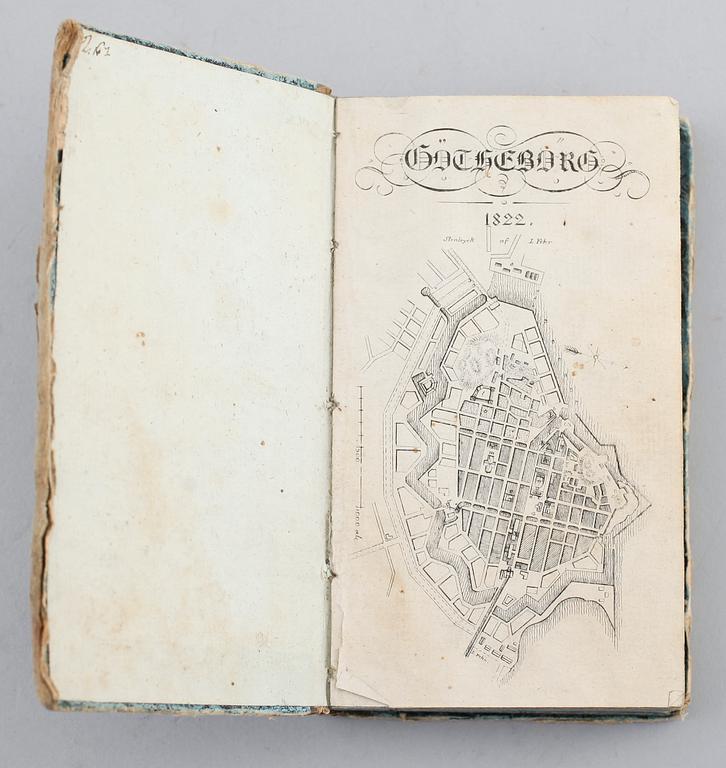 GÖTHEBORG
1822.
Stentryck af I. Fehr
500
1000 al.